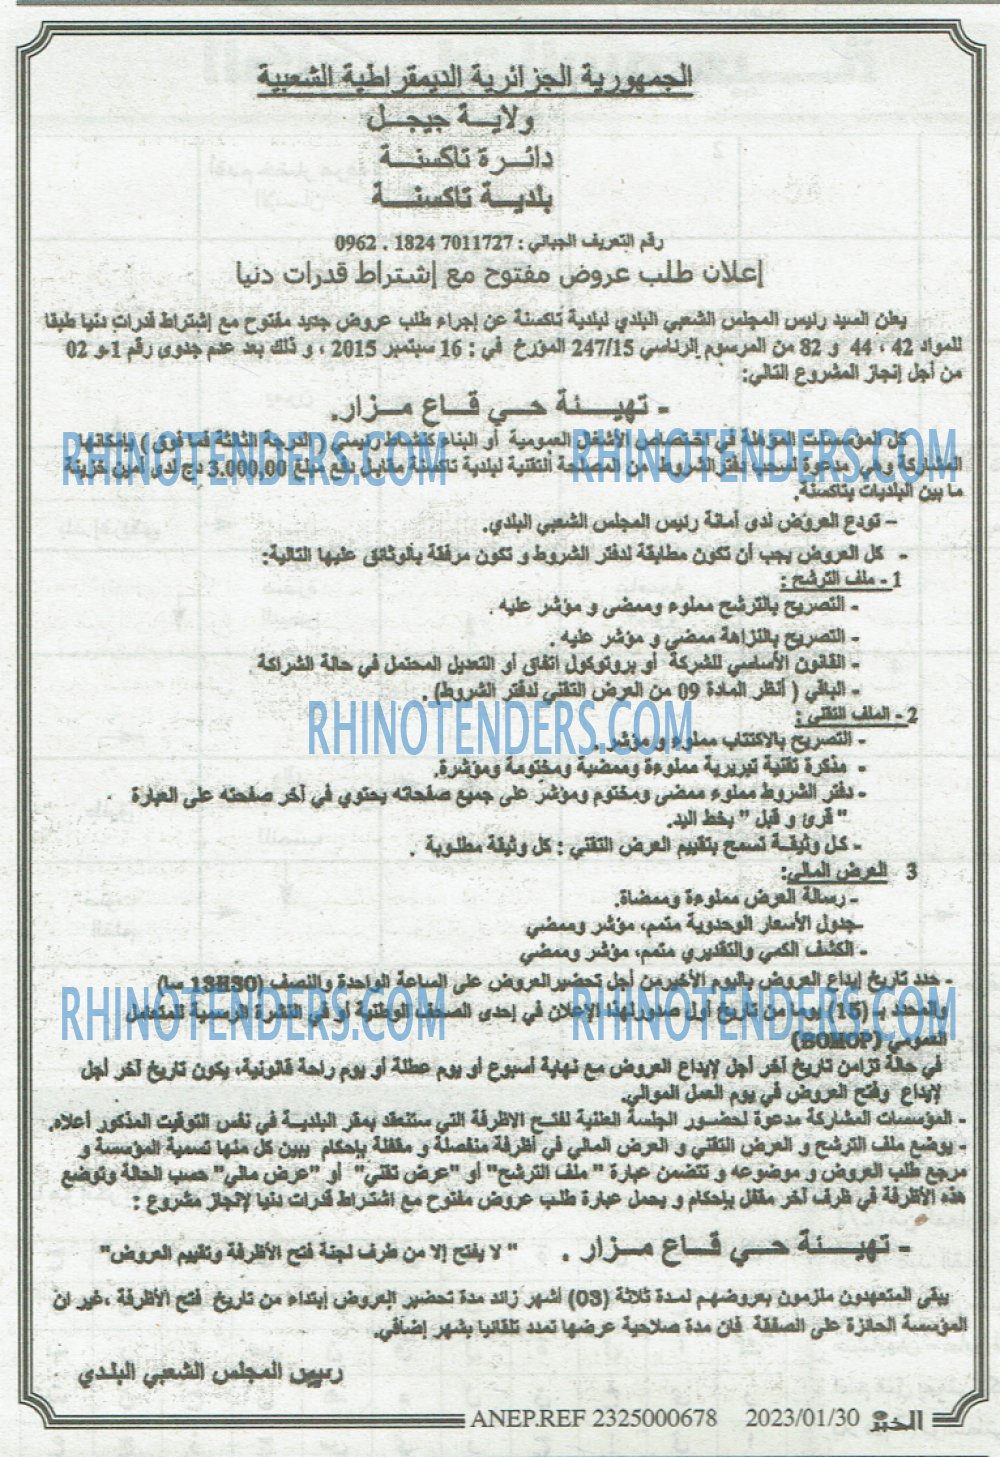 الجمهورية الجزائرية الديمقراطية الشعبية
ولايـــة جيجـــل
دائـــرة تاكسنـــة
بلديـــة تاكسنـــة
رقم التعريف الجبائي : 7011727 1824 . 0962
إعلان طلب عروض مفتوح مع إشتراط قدرات دنيا
يعلن السيد رئيس المجلس الشعبي البلدي لبلدية تاكسنة عن إجراء طلب عروض جديد مفتوح مع إشتراط قدرات دنيا طبقا
للمواد 42 ، 44 و 82 من المرسوم الرئاسي 247/15 المؤرخ في : 16 سبتمبر 2015 ، و ذلك بعد عدم جدوى رقم 1-و 02
من أجل إنجاز المشروع التالي:
- تهيـــئة حـي قـــاع مـــزار.
كل المؤسسات المؤهلة في اختصاص الأشغال العمومية أو البناء كنشاط رئيسي ( الدرجة الثالثة فما فوق ) بإمكانها
المشاركة وهي مدعوة لسحب دفتر الشروط من المصلحة التقنية لبلدية تاكسنة مقابل دفع مبلغ 3.000,00 دج لدى أمين خزينة
ما بين البلديات بتاكسنة.
– تودع العروض لدى أمانة رئيس المجلس الشعبي البلدي.
- كل العروض يجب أن تكون مطابقة لدفتر الشروط و تكون مرفقة بالوثائق عليها التالية:
1 - ملف الترشح :
- التصريح بالترشح مملوء وممضى و مؤشر عليه .
- التصريح بالنزاهة ممضي و مؤشر عليه .
- القانون الأساسي للشركة أو بروتوكول اتفاق أو التعديل المحتمل في حالة الشراكة
- الباقي ( أنظر المادة 09 من العرض التقني لدفتر الشروط) .
2 - الملف التقني :
- التصريح بالاكتتاب مملوء و مؤشر .
- مذكرة تقنية تبريرية مملوءة وممضية ومختومة ومؤشرة.
- دفتر الشروط مملوء ممضى ومختوم ومؤشر على جميع صفحاته يحتوي في آخر صفحته على العبارة
" قرئ و قبل " بخط اليد.
- كـل وثيقــة تسمح بتقييم العرض التقني : كل وثيقة مطلـوبة .
3 العرض المالي:
- رسالة العرض مملوءة وممضاة.
-جدول الأسعار الوحدوية متمم، مؤشر وممضي
- الكشف الكمي والتقديري متمم، مؤشر وممضي
- حدد تاريخ إيداع العروض باليوم الأخير من أجل تحضير العروض على الساعة الواحدة والنصف (13H30 سا)
والمحدد بـ (15) يوما من تاريخ أول صدور لهذا الإعلان في إحدى الصحف الوطنية أو في النشرة الرسمية للمتعامل
العمومي (BOMOP)
في حالة تزامن تاريخ آخر أجل لإيداع العروض مع نهاية أسبوع أو يوم عطلة أو يوم راحة قانونية، يكون تاريخ آخر أجل
لإيداع وفتح العروض في يوم العمل الموالي.
- المؤسسات المشاركة مدعوة لحضـور الجلسة العلنية لفتـح الاظرفة التي ستنعقد بمقر البلديـة في نفس التوقيت المذكور أعلاه.
- يوضع ملف الترشح و العرض التقني و العرض المالي في أظرفة منفصلة و مقفلة بإحكام يبين كل منها تسمية المؤسسة و
مرجع طلب العروض و موضوعه و تتضمن عبارة " ملف الترشح" أو "عرض تقني" أو "عرض مالي" حسب الحالة وتوضع
هذه الأظرفة في ظرف آخر مقفل بإحكام و يحمل عبارة طلـب عروض مفتوح مع اشتراط قدرات دنيا لإنجاز مشروع :
- تهيـــئة حـــي قـــاع مـــزار . " لا يفتح إلا من طرف لجنة فتح الأظرفة وتقييم العروض"
يبقى المتعهدون ملزمون بعروضهـم لمـدة ثلاثة (03) أشهر زائد مدة تحضير العروض إبتداء من تاريخ فتح الأظرفة ،غير ان
المؤسسة الحائزة على الصفقة فان مدة صلاحية عرضها تمدد تلقائيا بشهر إضافي.
رئيس المجلس الشعبي البلـدي
الخبر 2023/01/30 ANEP.REF 2325000678
RHINOTENDERS.COM
RHINOTENDERS.COM
RHINOTENDERS.COM
RHINOTENDERS.COM
RHINOTENDERS.COM